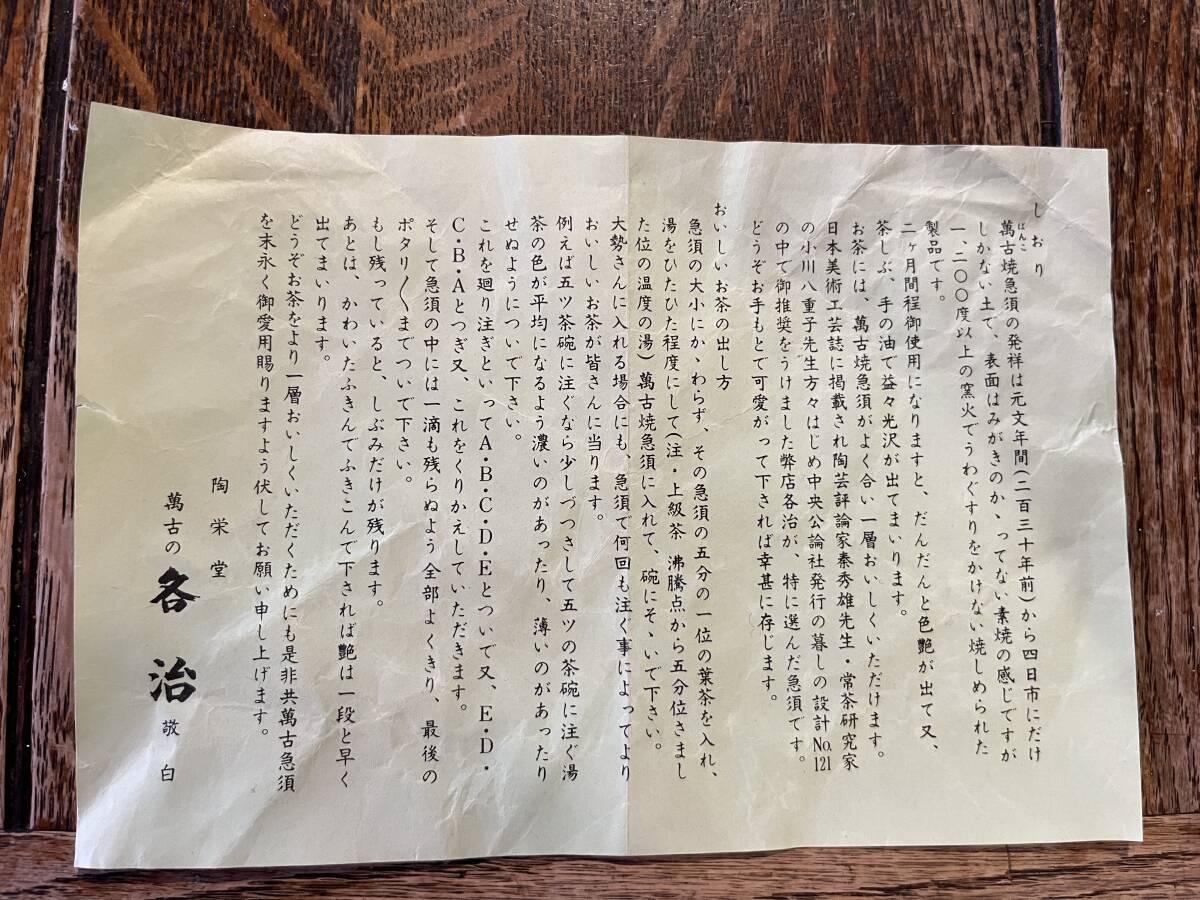 しおり
萬古焼急須の発祥は元文年間(二百三十年前)から四日市にだけ
ばんこ
しかない土で、表面はみがきのかゝってない素焼の感じですが
一、二〇〇度以上の窯火でうわぐすりをかけない焼しめられた
製品です。
二ヶ月間程御使用になりますと、だんだんと色艶が出て又、
茶しぶ、手の油で益々光沢が出てまいります。
お茶には、萬古焼急須がよく合い一層おいしくいただけます。
日本美術工芸誌に掲載され陶芸評論家秦秀雄先生・常茶研究家
の小川八重子先生方々はじめ中央公論社発行の暮しの設計No.121
の中で御推奨をうけました弊店各治が、特に選んだ急須です。
どうぞお手もとで可愛がって下されば幸甚に存じます。
おいしいお茶の出し方
急須の大小にかゝわらず、その急須の五分の一位の葉茶を入れ、
湯をひたひた程度にして(注・上級茶 沸騰点から五分位さまし
た位の温度の湯)萬古焼急須に入れて、碗にそゝいで下さい。
大勢さんに入れる場合にも、急須で何回も注ぐ事によってより
おいしいお茶が皆さんに当ります。
例えば五ツ茶碗に注ぐなら少しづつさして五ツの茶碗に注ぐ湯
茶の色が平均になるよう濃いのがあったり、薄いのがあったり
せぬようについで下さい。
これを廻り注ぎといってA・B・C・D・Eとついで又、E・D・
C・B・Aとつぎ又、これをくりかえしていただきます。
そして急須の中には一滴も残らぬよう全部よくきり、最後の
ポタリ〱までついで下さい。
もし残っていると、しぶみだけが残ります。
あとは、かわいたふきんでふきこんで下されば艶は一段と早く
出てまいります。
どうぞお茶をより一層おいしくいただくためにも是非共萬古急須
を末永く御愛用賜りますよう伏してお願い申し上げます。
陶栄堂
萬古の 各治 敬白